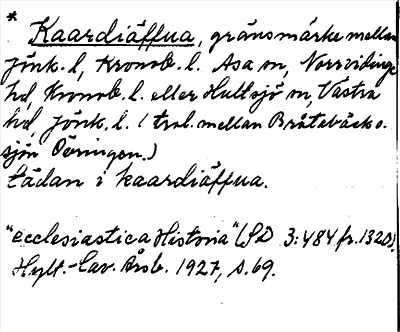 * Kaardiäffua, gränsmärke mellan
Jönk. l, Kronob. l. Asa sn, Norrvidinge
hd, Kronob. l. eller Hultsjö sn, Västra
hd, Jönk. l. (trol. mellan Bråtabäck o.
sjön Öringen.)
tädan i kaardiäffua.
"ecclesiastica Historia" (SD 3:484 fr. 1320).
Hylt.-Cav. Årsb. 1927, s. 69.